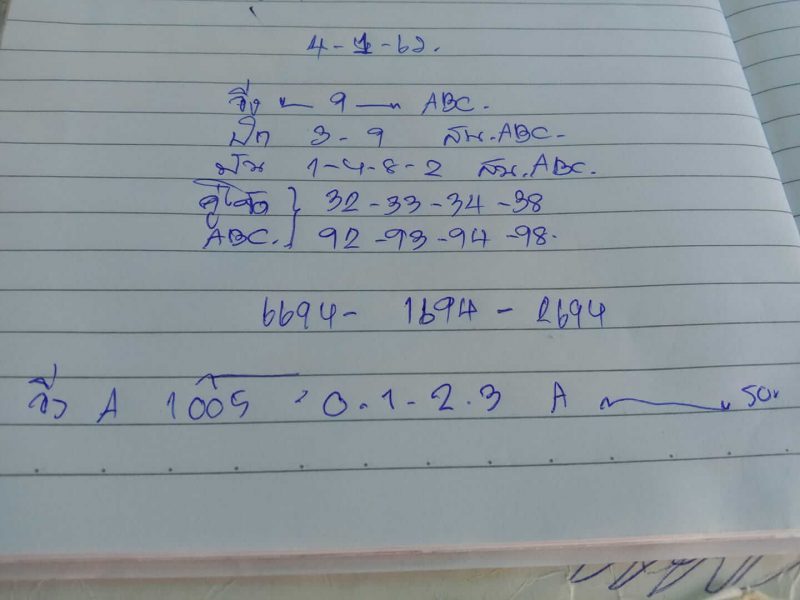 4-1-62.
วิ่ง 9 ABC.
ปัก 3-9 สน.ABC-
1-4-8-2 สน.ABC.
32-33-34-38
ABC. } 92-93-94-98.
6694- 1694 - 2694
วิ่ง A 1005 0.1-2.3 A 50